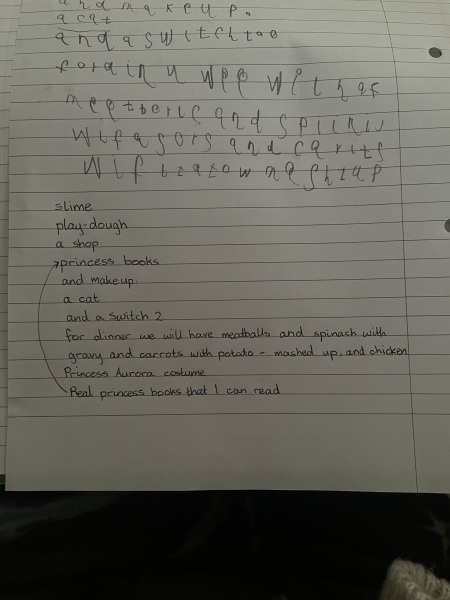 and makeup.
a cat
and a switch too
for din u wee wil haf
meetborls and spinij
wif
and carits
wif
slime
play-dough
a shop
princess books
and makeup.
a cat
and a switch 2
for dinner we will have meatballs and spinach with
gravy and carrots with potato - mashed up, and chicken
Princess Aurora costume
Real princess books that I can read